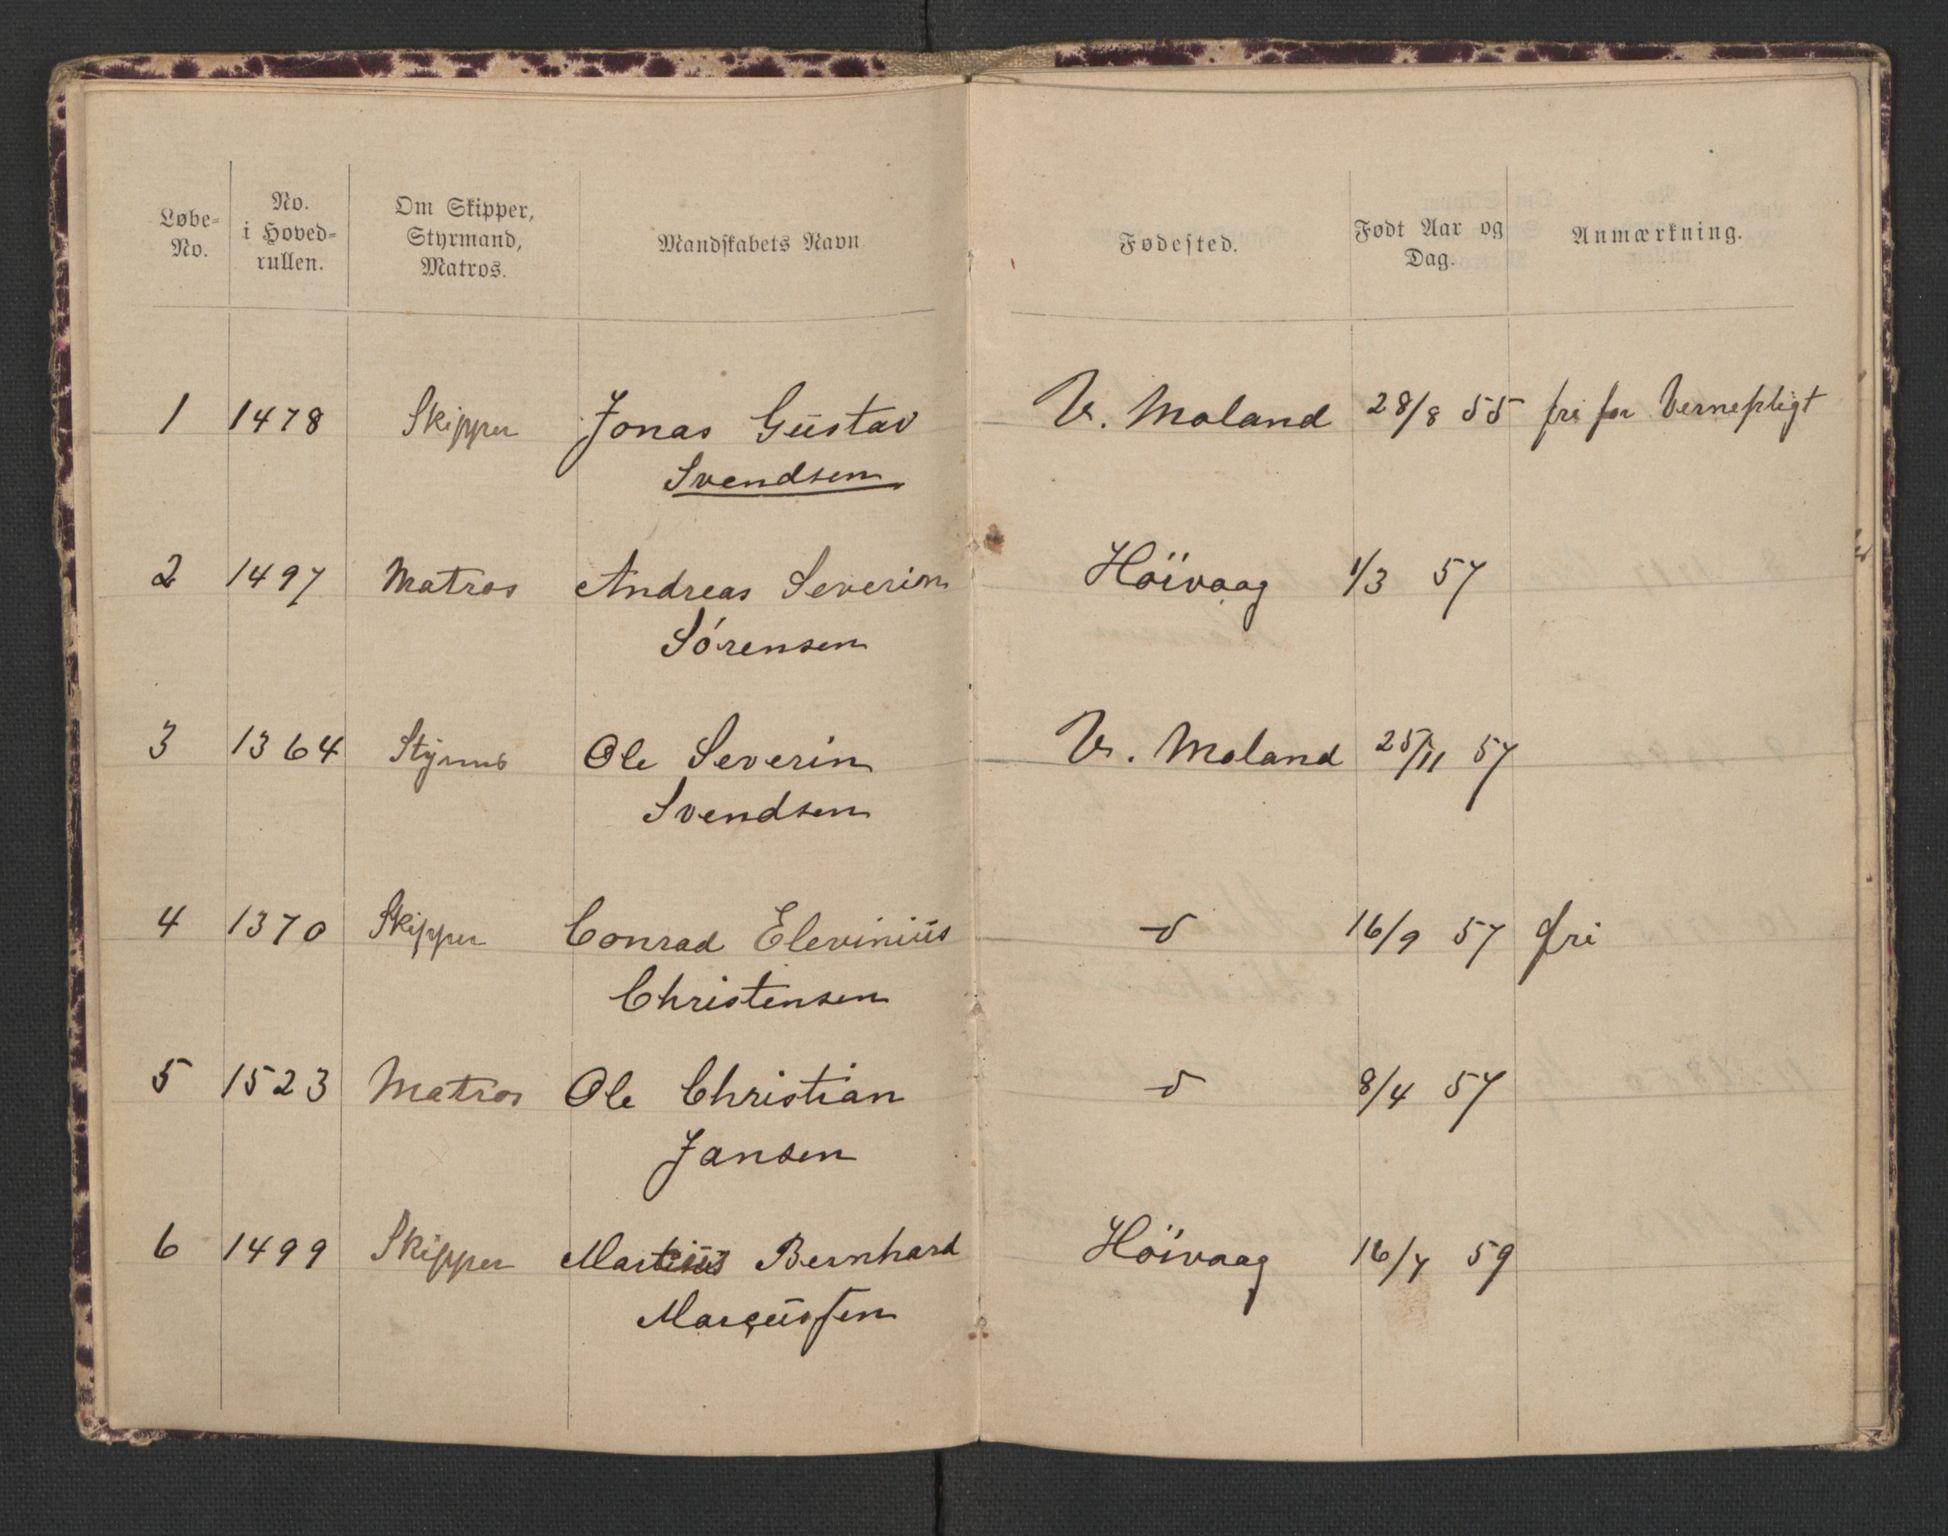 Løbe-No. No. i Hoved-rullen. Om Skipper, Styrmand, Matros. Mandskabets Navn Fødested. Født Aar og Dag. Anmærkning.
1 1478 Skipper Jonas Gustav V. Moland 28/8 55 fri for Vernepligt
Svendsen
2 1497 Matros Andreas Severin Høivaag 1/3 57
Sørensen
3 1364 Ole Severin V. Moland 25/11 57
Svendsen
4 1370 Skipper Conrad Elevinius 16/9 57 fri
Christensen
5 1523 Matros Ole Christian 8/4 57
Jansen
6 1499 Skipper Martius Bernhard Høivaag 16/7 59
Marcussen